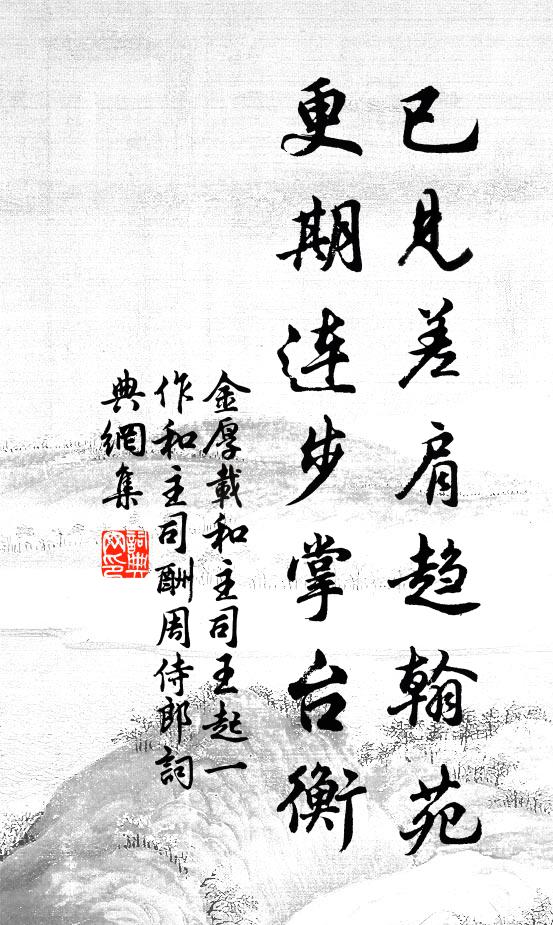 已见差肩趋翰苑
更期连步掌台衡
金厚載和主司王起一
作和主司酬周侍郎詞
典網集
詞典
网印